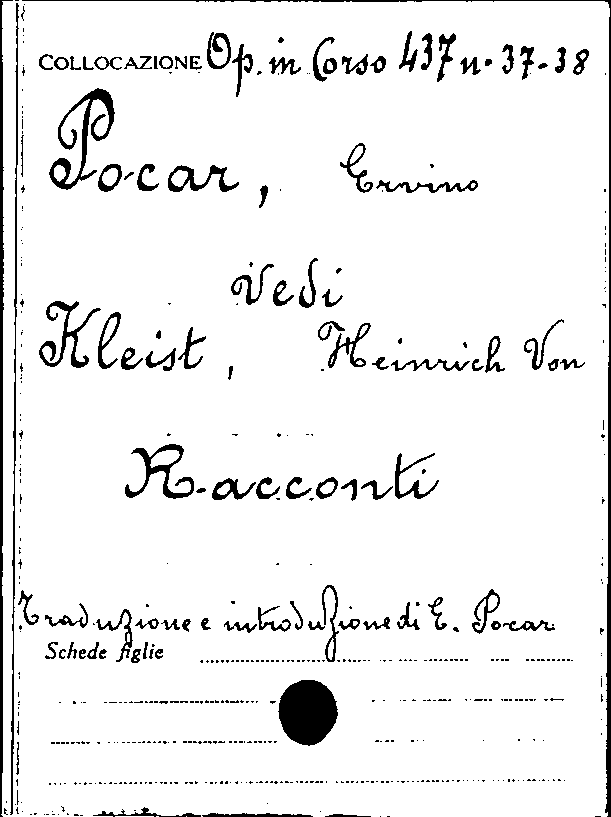 COLLOCAZIONE Op. in Corso 437 n. 37-38
Pocar, Ervino
Vedi
Kleist, Heinrich Von
Racconti
Traduzione e introduzione di E. Pocar
Schede figlie